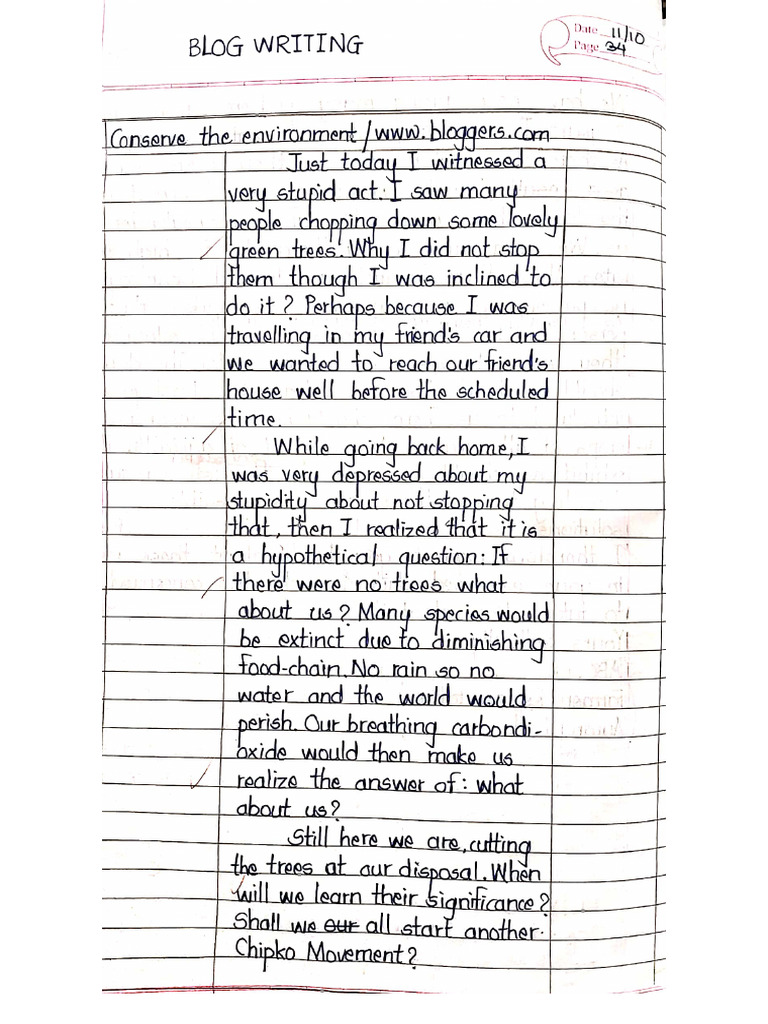 BLOG WRITING
Date 11/10
Page 34
Conserve the environment / www.bloggers.com
Just today I witnessed a
very stupid act. I saw many
people chopping down some lovely
green trees. Why I did not stop
them though I was inclined to
do it? Perhaps because I was
travelling in my friend's car and
we wanted to reach our friend's
house well before the scheduled
time.
While going back home, I
was very depressed about my
stupidity about not stopping
that, then I realized that it is
a hypothetical question: If
there were no trees what
about us? Many species would
be extinct due to diminishing
food-chain. No rain so no
water and the world would
perish. Our breathing carbondi-
oxide would then make us
realize the answer of: what
about us?
Still here we are, cutting
the trees at our disposal. When
will we learn their significance?
Shall we our all start another
Chipko Movement?